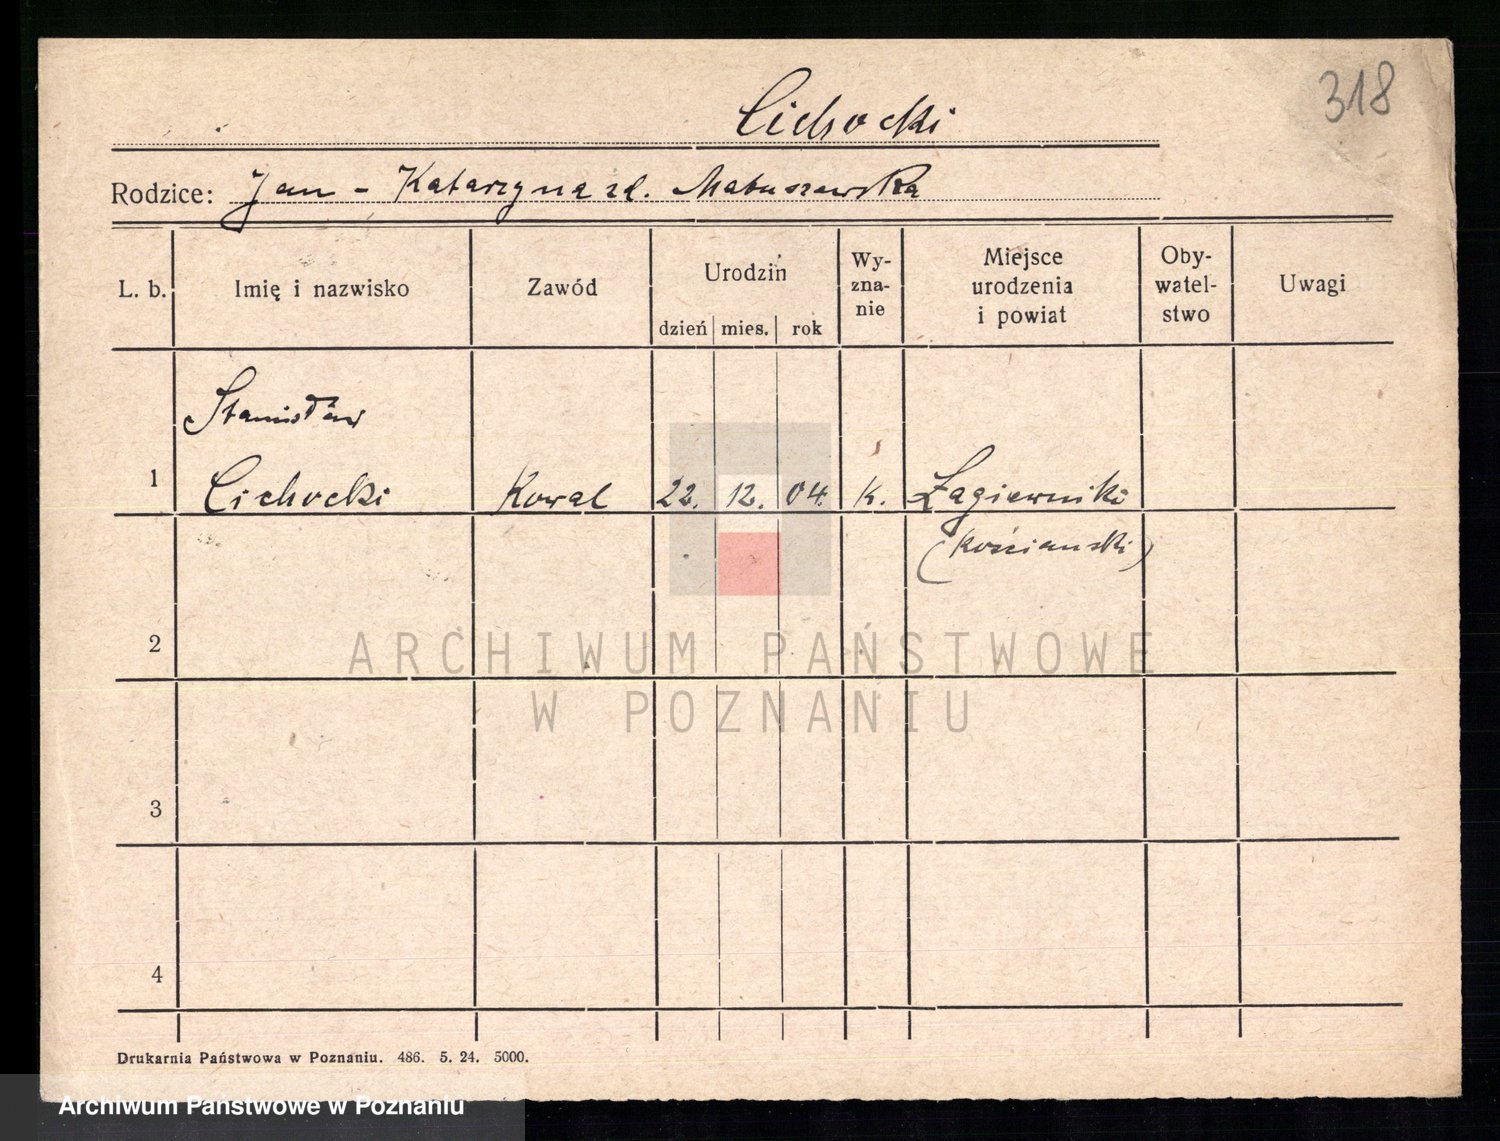 318
Cichocki
Rodzice: Jan - Katarzyna zd. Matuszewska
L. b. Imię i nazwisko Zawód Urodzin Wy- Miejsce Oby- Uwagi
zna- urodzenia watel-
nie i powiat stwo
dzień mies. rok
Stanisław
1 Cichocki Kowal 22. 12. 04. k. Łagiewniki
(kościański)
2
ARCHIWUM PAŃSTWOWE
W POZNANIU
3
4
Drukarnia Państwowa w Poznaniu. 486. 5. 24. 5000.
Archiwum Państwowe w Poznaniu